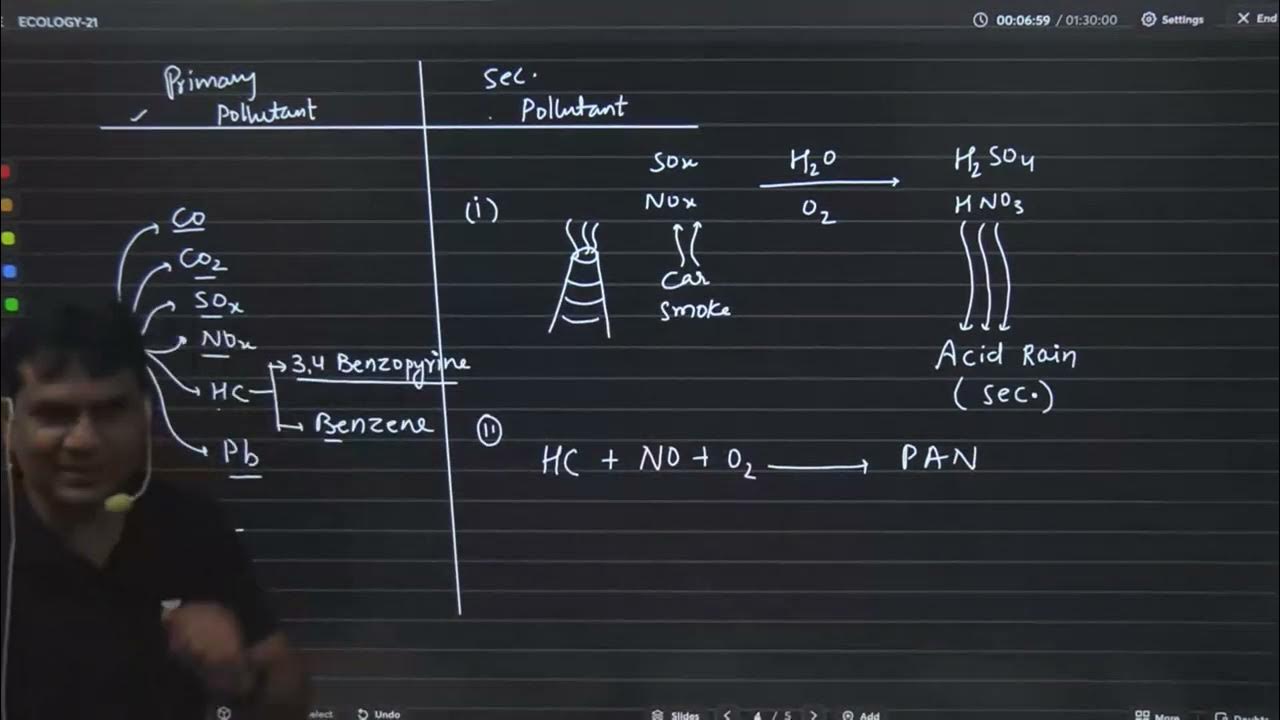 ECOLOGY-21
00:06:59 / 01:30:00
Settings
End
Primary
Pollutant
Sec.
Pollutant
CO
CO₂
SOx
NOx
HC
3,4 Benzopyrine
Benzene
Pb
(i)
SOx
NOx
H₂O
O₂
H₂SO₄
HNO₃
Car
smoke
Acid Rain
(sec.)
ii
HC + NO + O₂ → PAN
Undo
Slides
4 / 5
Add
More